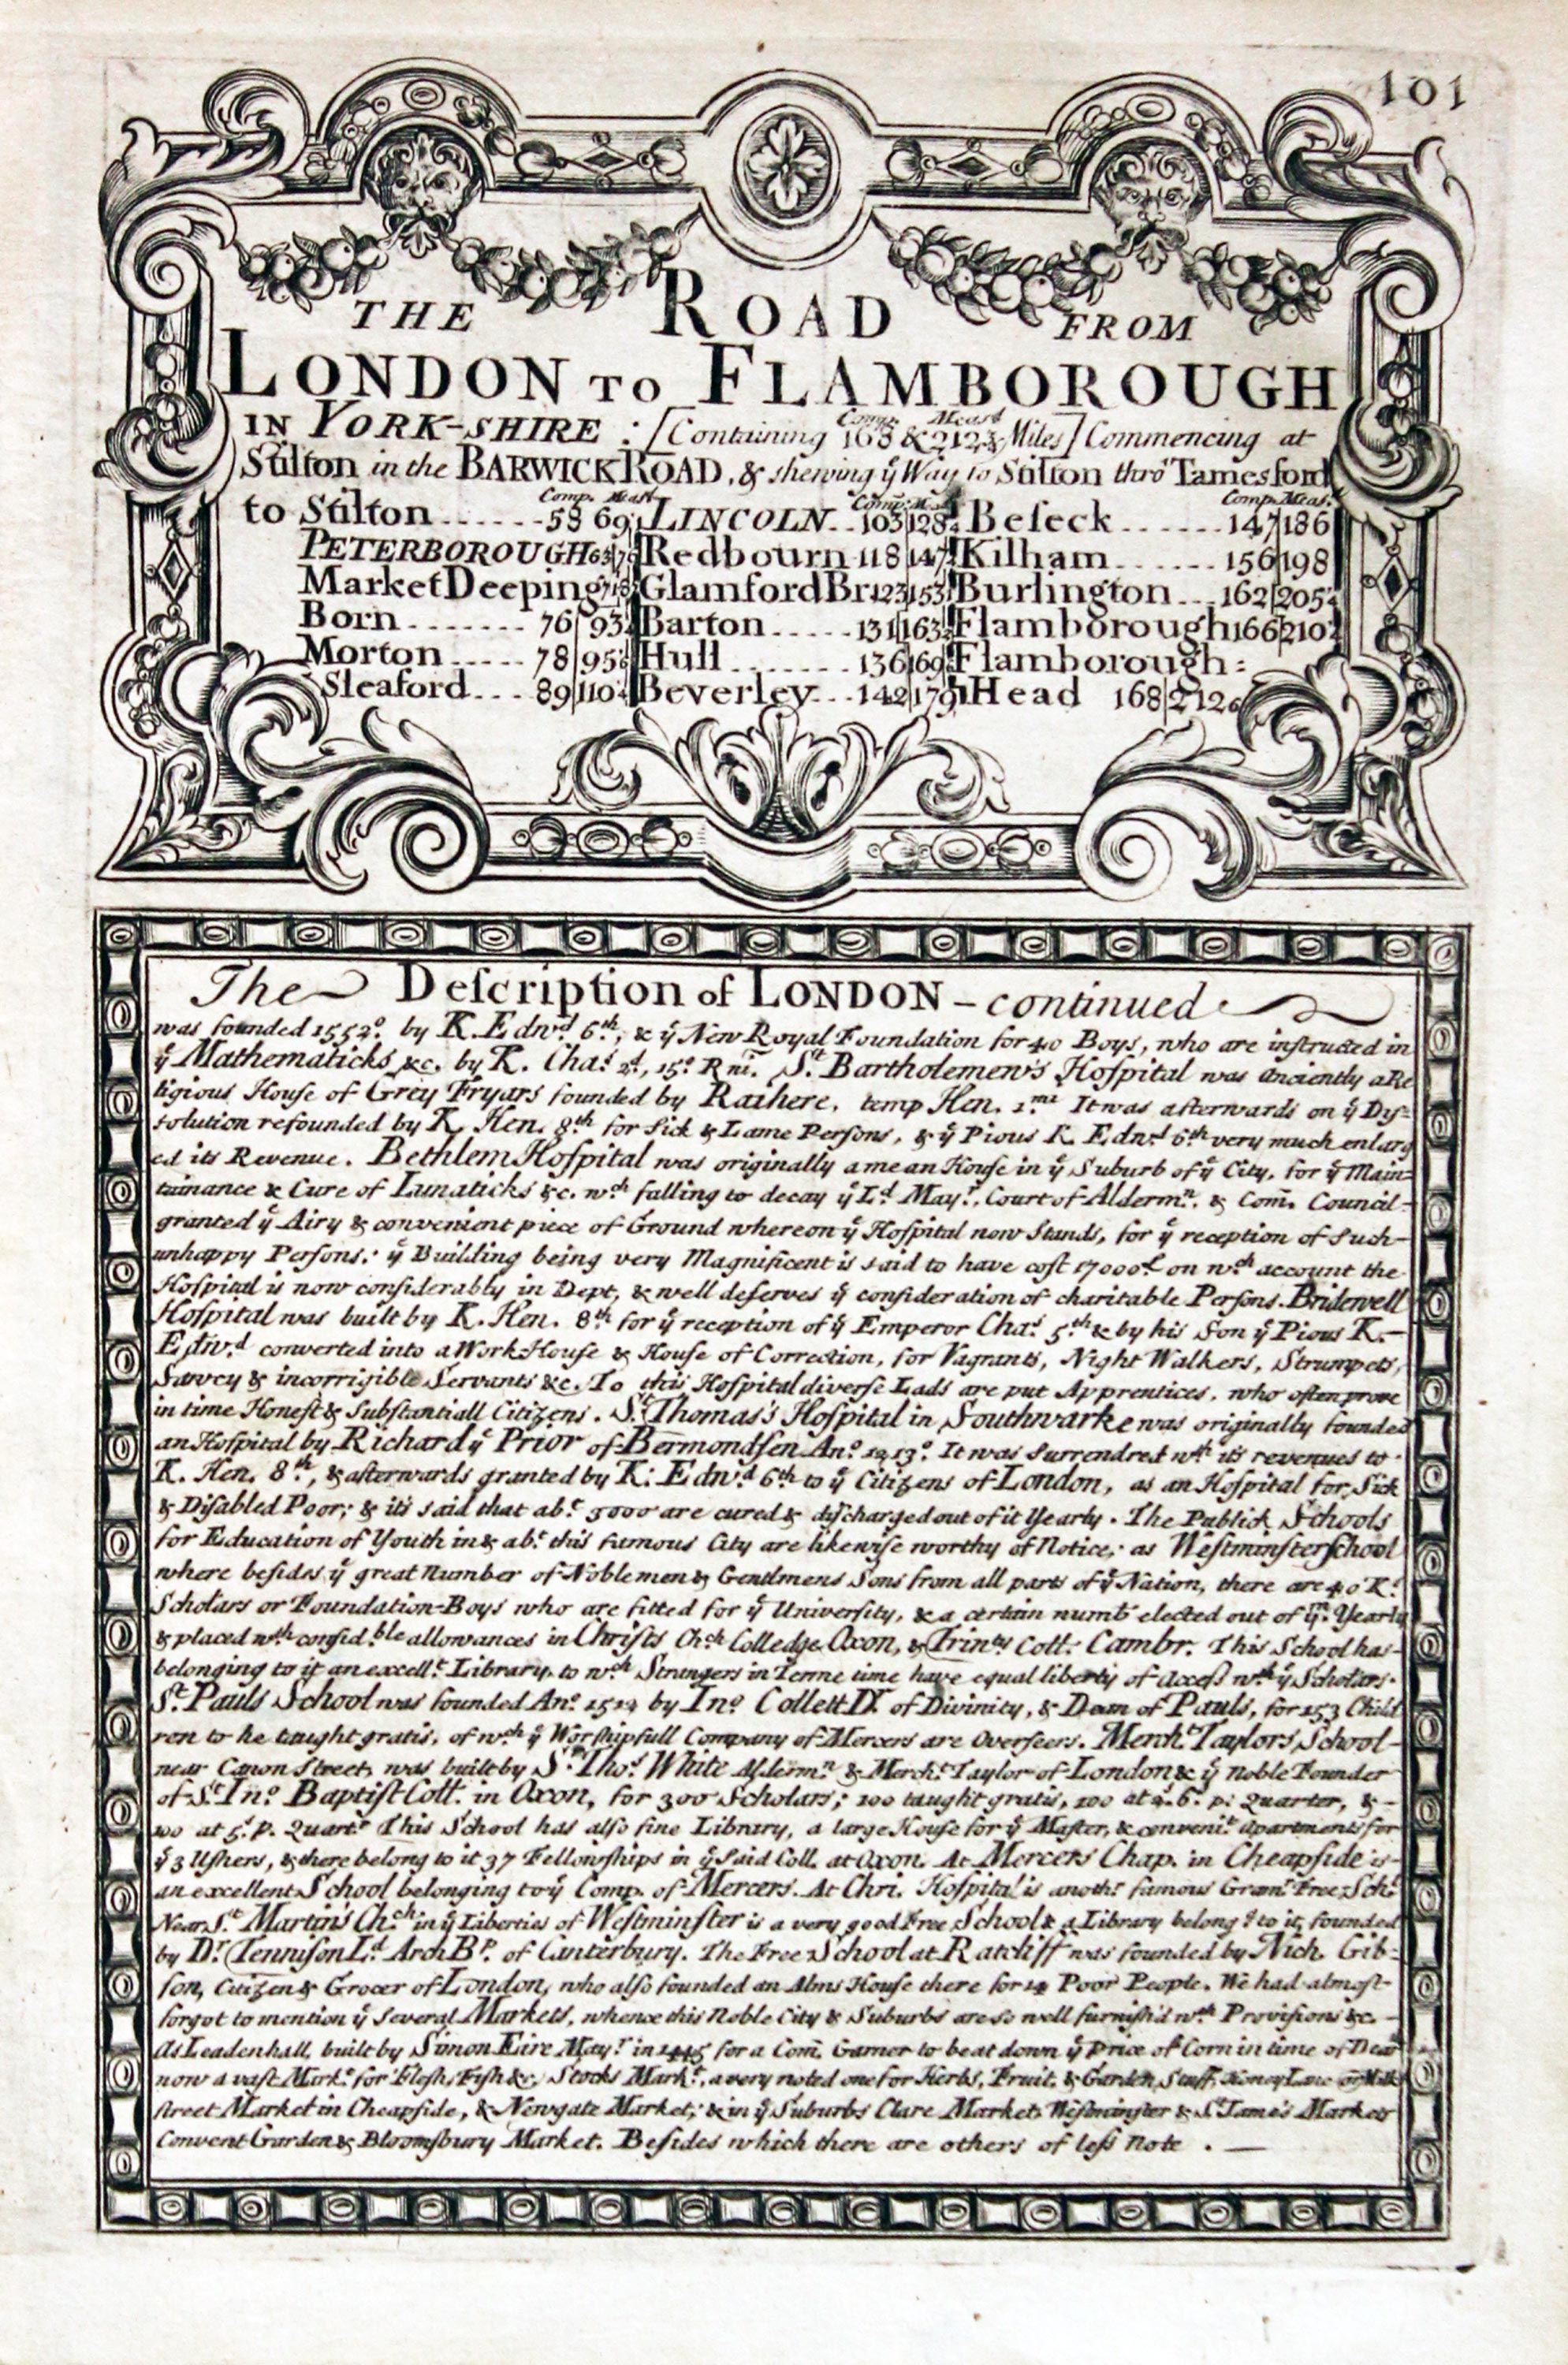 101
THE ROAD FROM
LONDON TO FLAMBOROUGH
IN YORK-SHIRE : [Containing Comp. 168 & Meast 212¾ Miles] Commencing at
Stilton in the BARWICK ROAD, & shewing ẏ Way to Stilton thro' Tamesford
Comp. Meast Comp. Meas. Comp. Meas.
to Stilton ...... 58 69
PETERBOROUGH 63
Market Deeping
Born ........ 76 93
Morton ..... 78 95
Sleaford ... 89 110
LINCOLN .. 103 128
Redbourn 118 147
Glamford Br. 123 153
Barton ..... 131 163
Hull ....... 136 169
Beverley ... 142 179
Beseck ...... 147 186
Kilham ...... 156 198
Burlington ... 162 205
Flamborough 166 210
Flamborough:
Head 168 212
The Deſcription of LONDON - continued
was founded 1552º by K. Edwd. 6th, & ẏ New Royal Foundation for 40 Boys, who are instructed in
ẏ Mathematicks &c. by K. Chas. 2d, 15º Rni. St. Bartholemew's Hoſpital was Anciently a Re
ligious House of Grey Fryars founded by Raihere, temp Hen. 1mi It was afterwards on ẏ Dys=
solution refounded by K. Hen. 8th for Sick & Lame Persons, & ẏ Pious K. Edwd 6th very much enlarg
ed its Revenue. Bethlem Hoſpital was originally a mean House in ẏ Suburb of ẏ City, for ẏ Main=
tainance & Cure of Lunaticks &c. wch falling to decay ẏ Ld Mayr, Court of Aldermn. & Com. Council-
granted ẏ Airy & convenient piece of Ground whereon ẏ Hoſpital now Stands, for ẏ reception of Such-
unhappy Persons: ẏ Building being very Magnificent is said to have cost 17000£ on wch account the
Hoſpital is now conſiderably in Dept, & well deſerves ẏ conſideration of charitable Perſons. Bridewell
Hoſpital was built by K. Hen. 8th for ẏ reception of ẏ Emperor Chas 5th & by his Son ẏ Pious K.-
Edwd converted into a Work House & House of Correction, for Vagrants, Night Walkers, Strumpets,
Sawcy & incorrigible Servants &c. To this Hoſpital diverse Lads are put Apprentices, who often prove
in time Honest & Substantiall Citizens. St. Thomas's Hoſpital in Southwarke was originally founded
an Hoſpital by Richard ẏ Prior of Bermondſen Anº 1213º It was Surrendred wth its revenues to
K. Hen. 8th, & afterwards granted by K. Edwd 6th to ẏ Citizens of London, as an Hoſpital for Sick
& Diſabled Poor; & its said that abt 3000 are cured & diſcharged out of it Yearly. The Publick Schools
for Education of Youth in & abt this famous City are likewiſe worthy of Notice; as Weſtminster School
where besides ẏ great Number of Noblemen & Gentlmens Sons from all parts of ẏ Nation, there are 40 Ks
Scholars or Foundation-Boys who are fitted for ẏ University, & a certain numb elected out of ẏm Yearly
& placed wth conſidble allowances in Christs Chch Colledge Oxon, & Trinty Coll: Cambr. This School has-
belonging to it an excellt Library, to wch Strangers in Terme time have equal liberty of Acceſs wth ẏ Scholars.
St Pauls School was founded Anº 1512 by Jnº Collett Dr of Divinity, & Dean of Pauls, for 153 Child
ren to be taught gratis, of wch ẏ Worſhipfull Company of Mercers are Overseers. Mercht Taylors School-
near Canon Street, was built by Sr Thos White Aldermn & Mercht Taylor of London & ẏ Noble Founder
of St Jnº Baptiſt Coll: in Oxon, for 300 Scholars; 100 taught gratis, 100 at 2s 6d p. Quarter, &-
100 at 5s p. Quartr This School has alſo fine Library, a large House for ẏ Master, & convenit Apartments for
ẏ 3 Uſhers, & there belong to it 37 Fellowſhips in ẏ Said Coll. at Oxon. At Mercers Chap. in Cheapſide is-
an excellent School belonging to ẏ Comp. of Mercers. At Chri. Hoſpital is anothr famous Gram Free Schl
Near St Martin's Chch in ẏ Liberties of Weſtminſter is a very good Free School & a Library belongg to it, founded
by Dr Tenniſon Ld Arch Bp of Canterbury. The Free School at Ratcliff was founded by Nich. Gib=
ſon, Citizen & Grocer of London, who alſo founded an Alms House there for 14 Poor People. We had almoſt-
forgot to mention ẏ Several Markets, whence this Noble City & Suburbs are so well furniſh'd wth Proviſions &c. -
As Leadenhall, built by Simon Eire Mayr in 1445 for a Com. Garner to beat down ẏ Price of Corn in time of Dear
now a vaſt Markt for Fleſh, Fiſh &c, Stocks Markt, a very noted one for Herbs, Fruit, & Garden Stuff, Honey Lane or Milk
ſtreet Market in Cheapſide, & Newgate Market; & in ẏ Suburbs Clare Market, Weſtminſter & St Jame's Markets
Convent Garden & Bloomſbury Market. Beſides which there are others of leſs Note . -